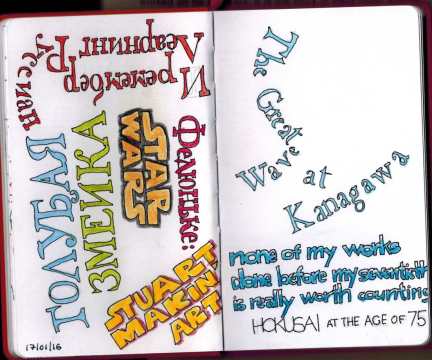 И ремембер
Леарнинг
Русиан
ГОЛУБАЯ
ЗМЕЙКА
STAR
WARS
STUART
MAKIN
ART
17/01/16
The Great
Wave at
Kanagawa
none of my works
done before my seventieth
is really worth counting
HOKUSAI AT THE AGE OF 75